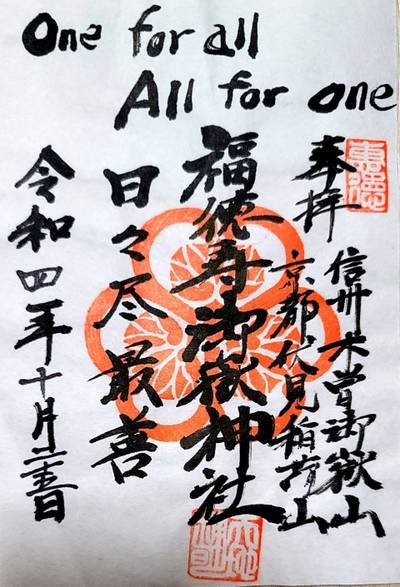 One for all
All for one
奉拝
信州木曽御嶽山
京都伏見稲荷山
福徳寿御嶽神社
日々尽最善
令和四年十月二十五日